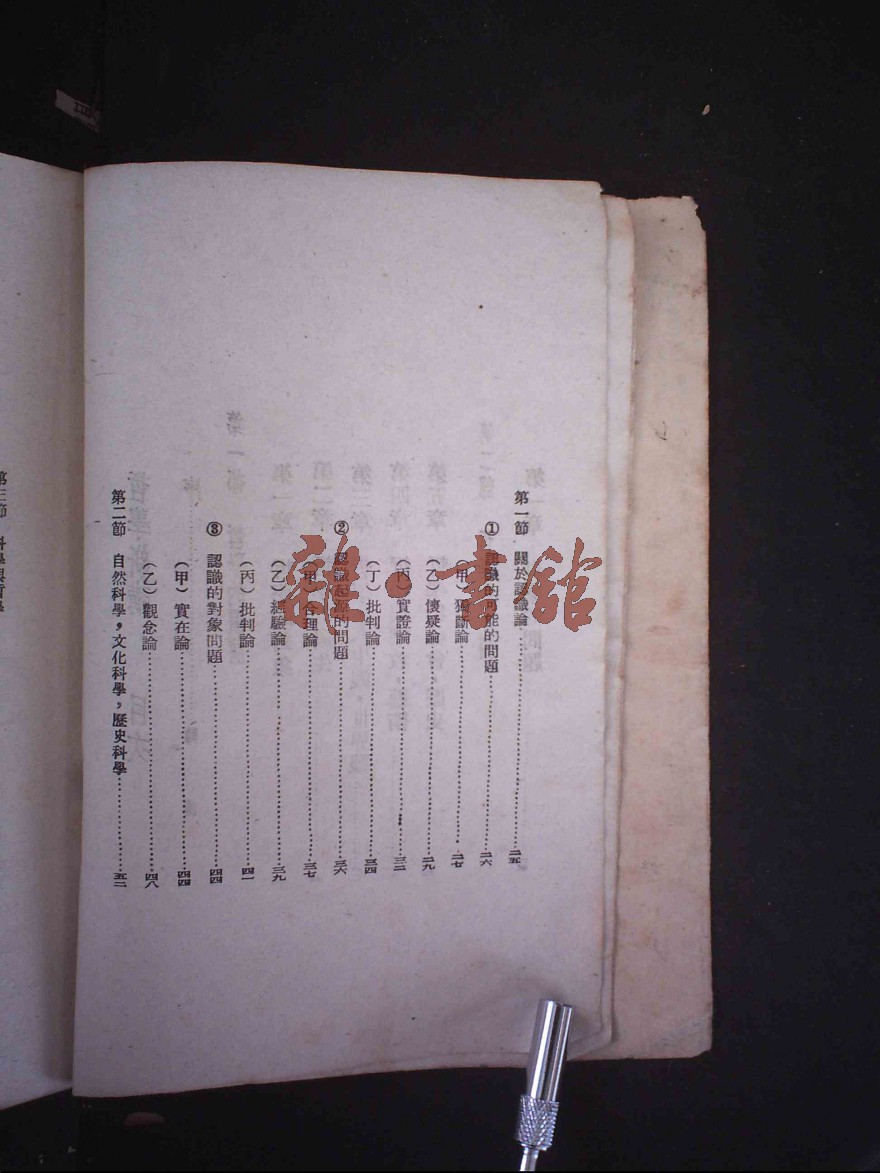 第一節 關於認識論……二五
① 認識的可能的問題……二六
(甲)獨斷論……二七
(乙)懷疑論……二九
(丙)實證論……三二
(丁)批判論……三四
② 認識起源的問題……三六
(甲)合理論……三七
(乙)經驗論……三九
(丙)批判論……四一
③ 認識的對象問題……四四
(甲)實在論……四四
(乙)觀念論……四八
第二節 自然科學,文化科學,歷史科學……五二
第三節 科學與哲學
雜·書館